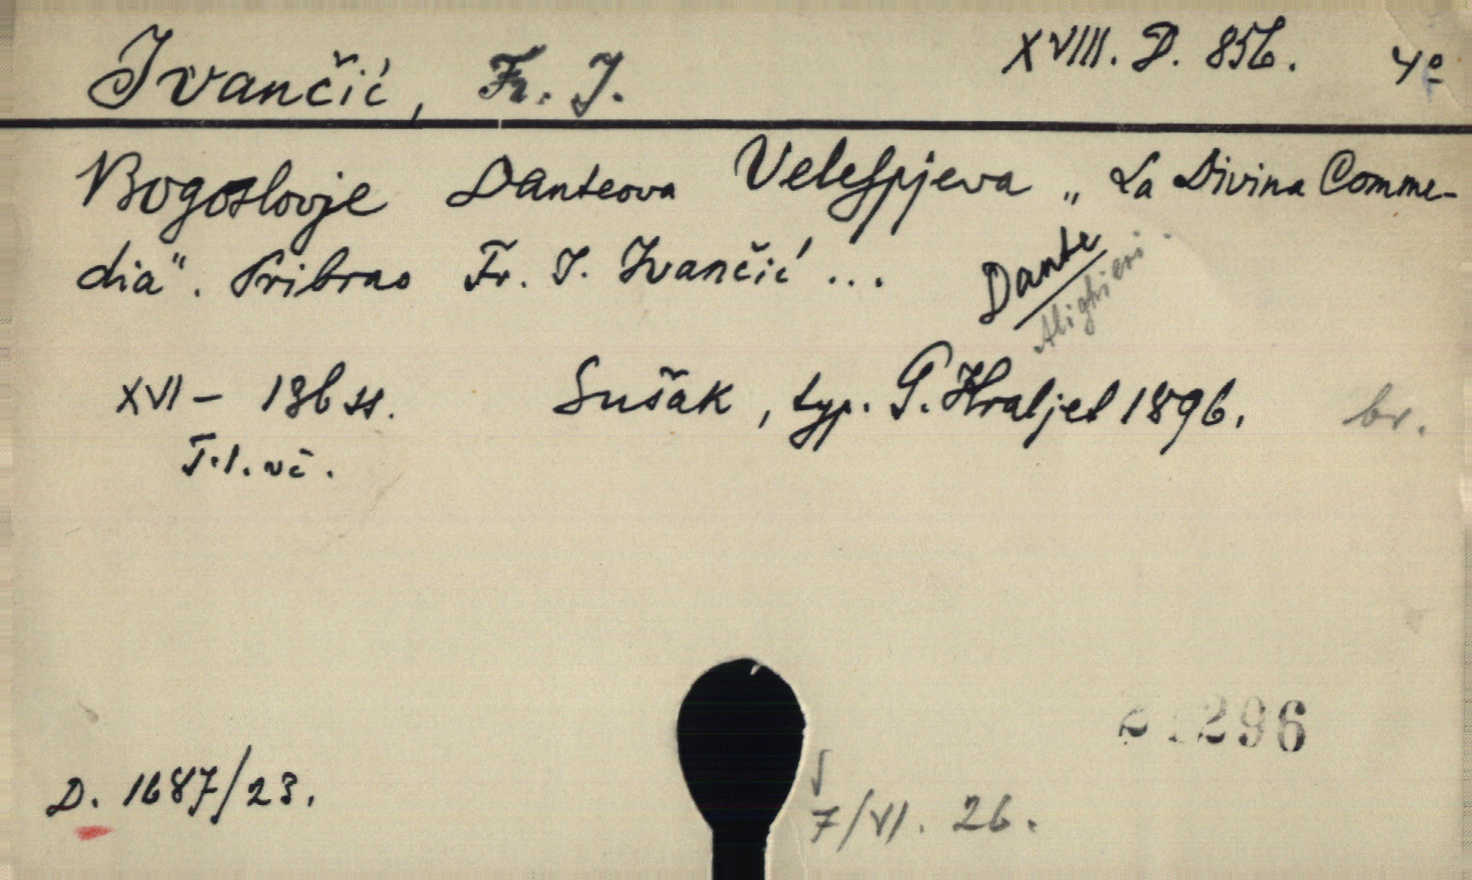 Ivančić, Fr. I.
XVIII. D. 856. 4º
Bogoslovje Danteova Velespjeva „La Divina Comme-
dia". Pribrao Fr. I. Ivančić ...
Dante
Alighieri.
XVI – 186 ss. Sušak, typ. G. Kraljeć 1896. br.
T.1. vč.
296
D. 1687/23.
7/VI. 26.